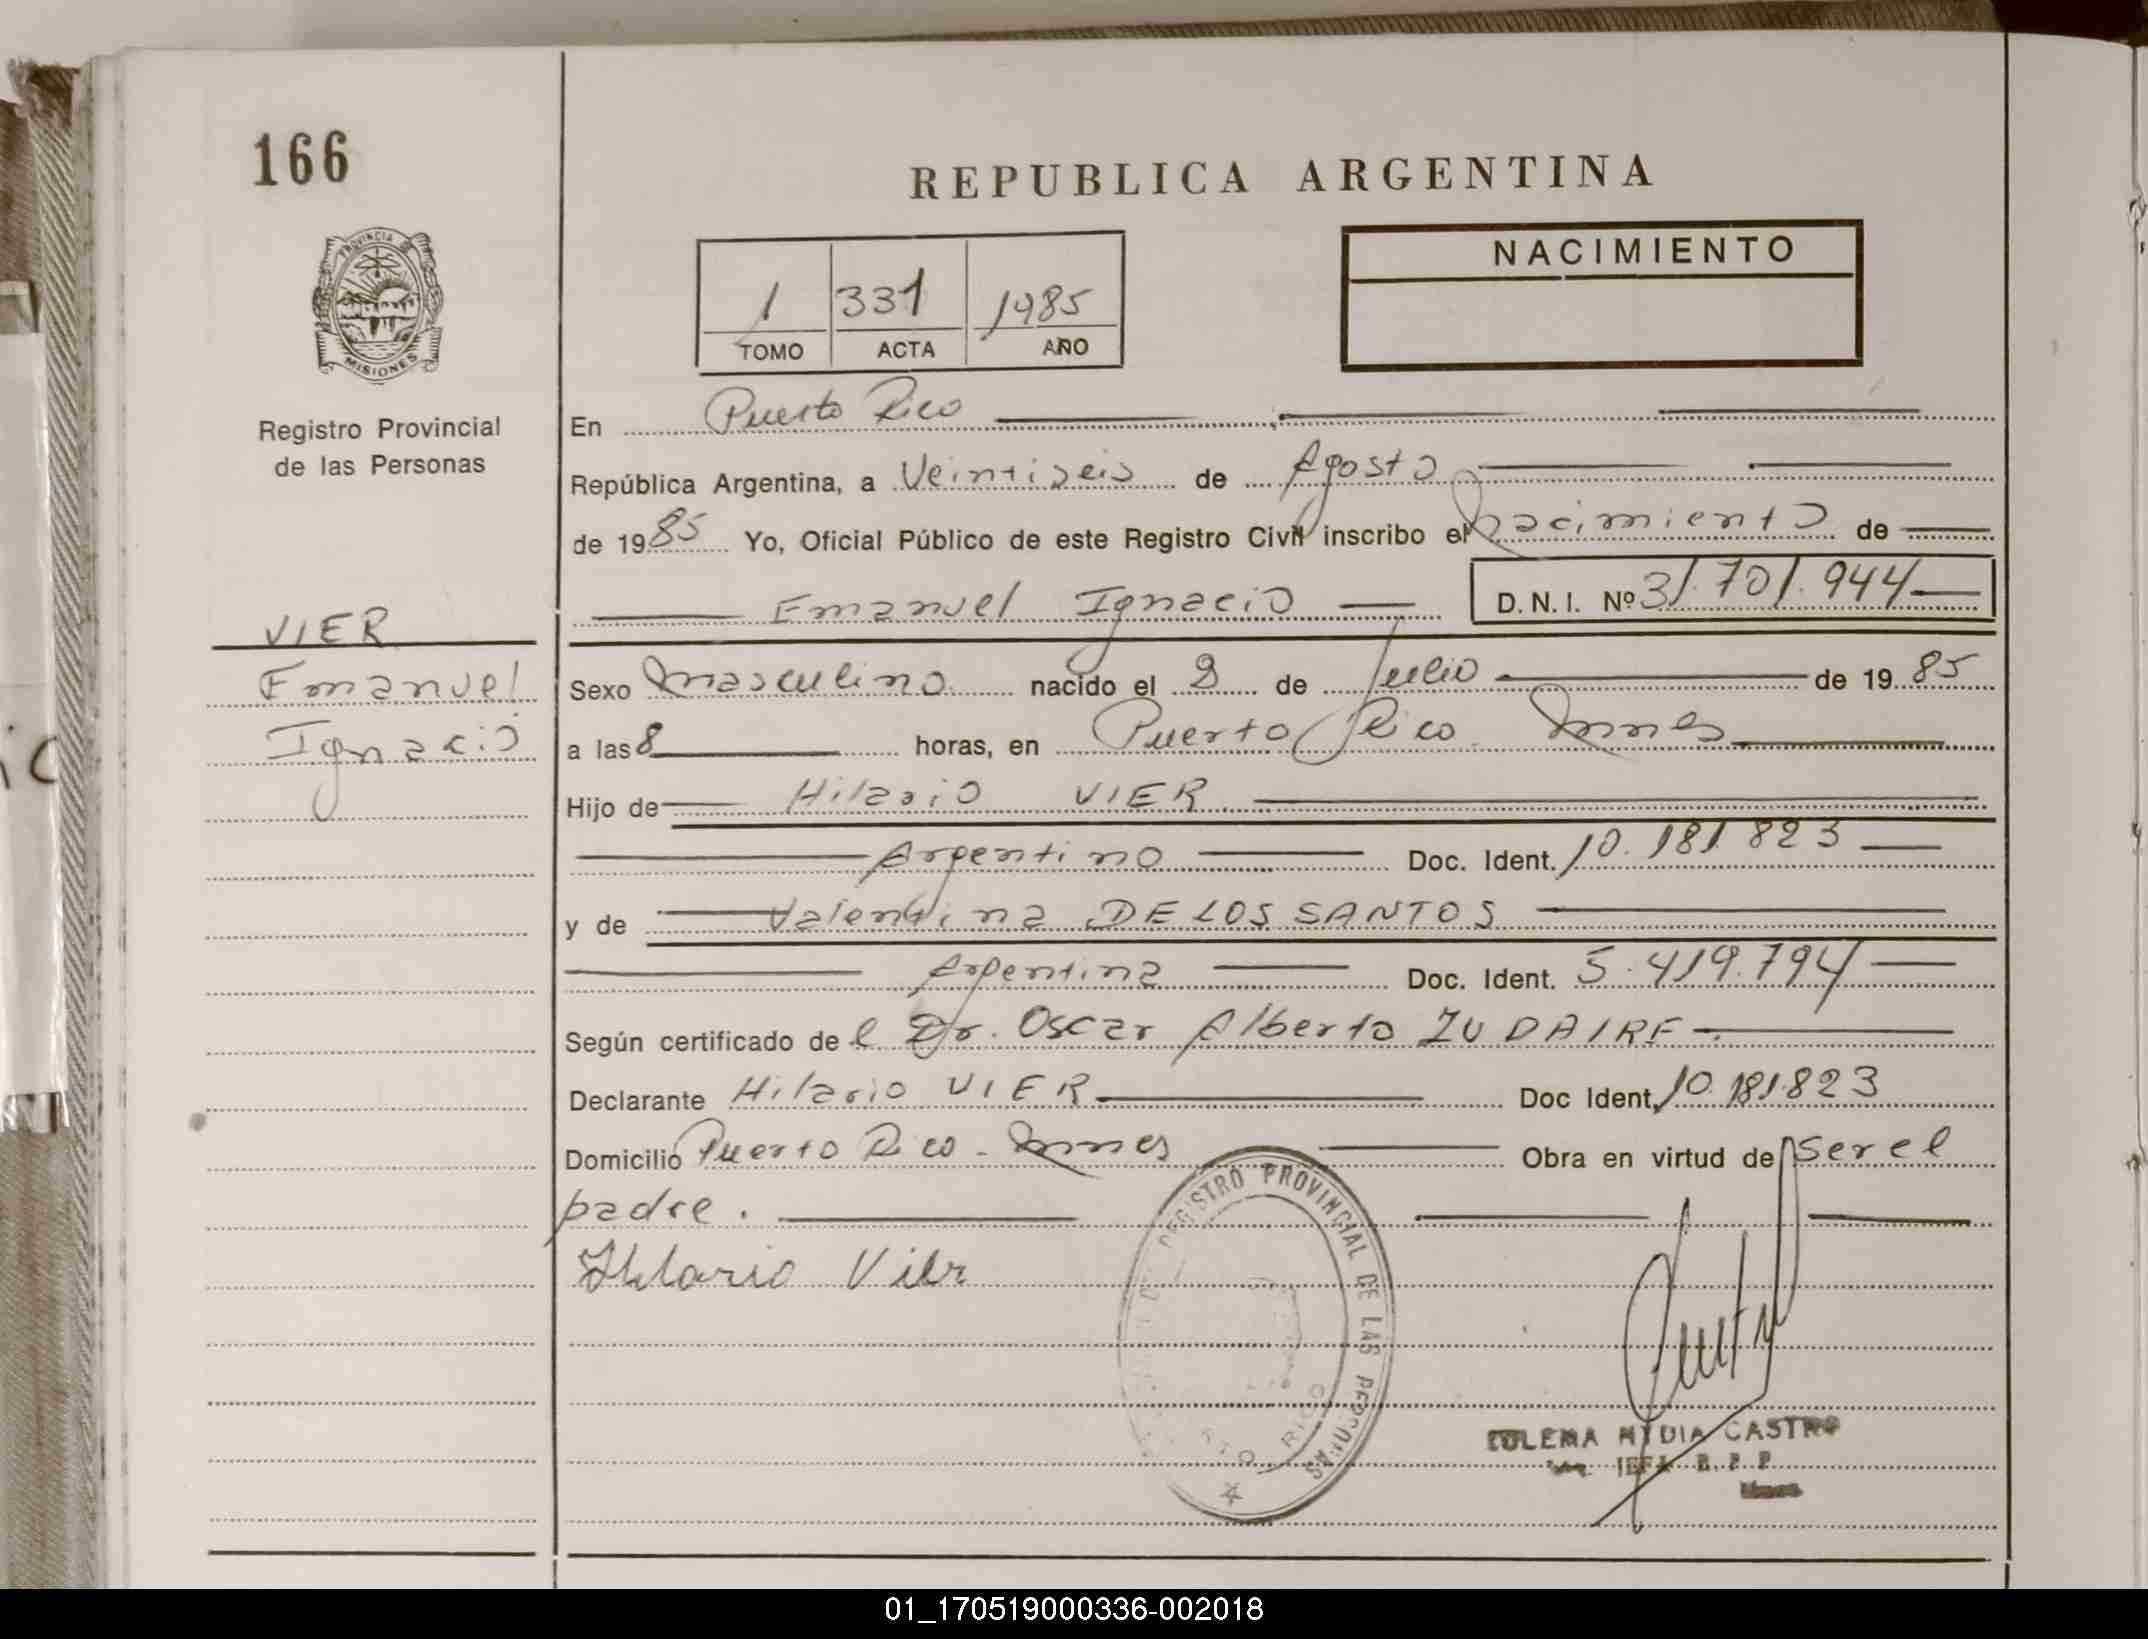 166
REPUBLICA ARGENTINA
PROVINCIA DE
MISIONES
NACIMIENTO
1 331 1985
TOMO ACTA AÑO
Registro Provincial
de las Personas
En Puerto Rico
República Argentina, a Veintiseis de Agosto
de 1985 Yo, Oficial Público de este Registro Civil inscribo el nacimiento de
Emanuel Ignacio D.N.I. Nº 31.701.944
VIER
Emanuel
Ignacio
Sexo masculino nacido el 8 de Julio de 1985
a las 8 horas, en Puerto Rico Mnes
Hijo de Hilario VIER
Argentino Doc. Ident. 10.181.823
y de Valentina DE LOS SANTOS
Argentina Doc. Ident. 5.419.794
Según certificado de l Dr. Oscar Alberto ZUDAIRE.
Declarante Hilario VIER Doc Ident. 10.181.823
Domicilio Puerto Rico - Mnes Obra en virtud de ser el
padre.
Hilario Vier
REGISTRO PROVINCIAL DE LAS PERSONAS
RTO RICO
ZULEMA NYDIA CASTRO
JEFA R. P. P.
01_170519000336-002018